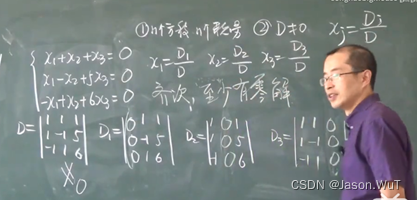 ①n个方程 n个未知量 ② D≠0 xj=Dj/D
x1+x2+x3=0
x1-x2+5x3=0
-x1+x2+6x3=0
x1=D1/D x2=D2/D x3=D3/D
齐次,至少有零解
D=|1 1 1; 1 -1 5; -1 1 6| D1=|0 1 1; 0 -1 5; 0 1 6| D2=|1 0 1; 1 0 5; -1 0 6| D3=|1 1 0; 1 -1 0; -1 1 0|
0
CSDN @Jason.WuT